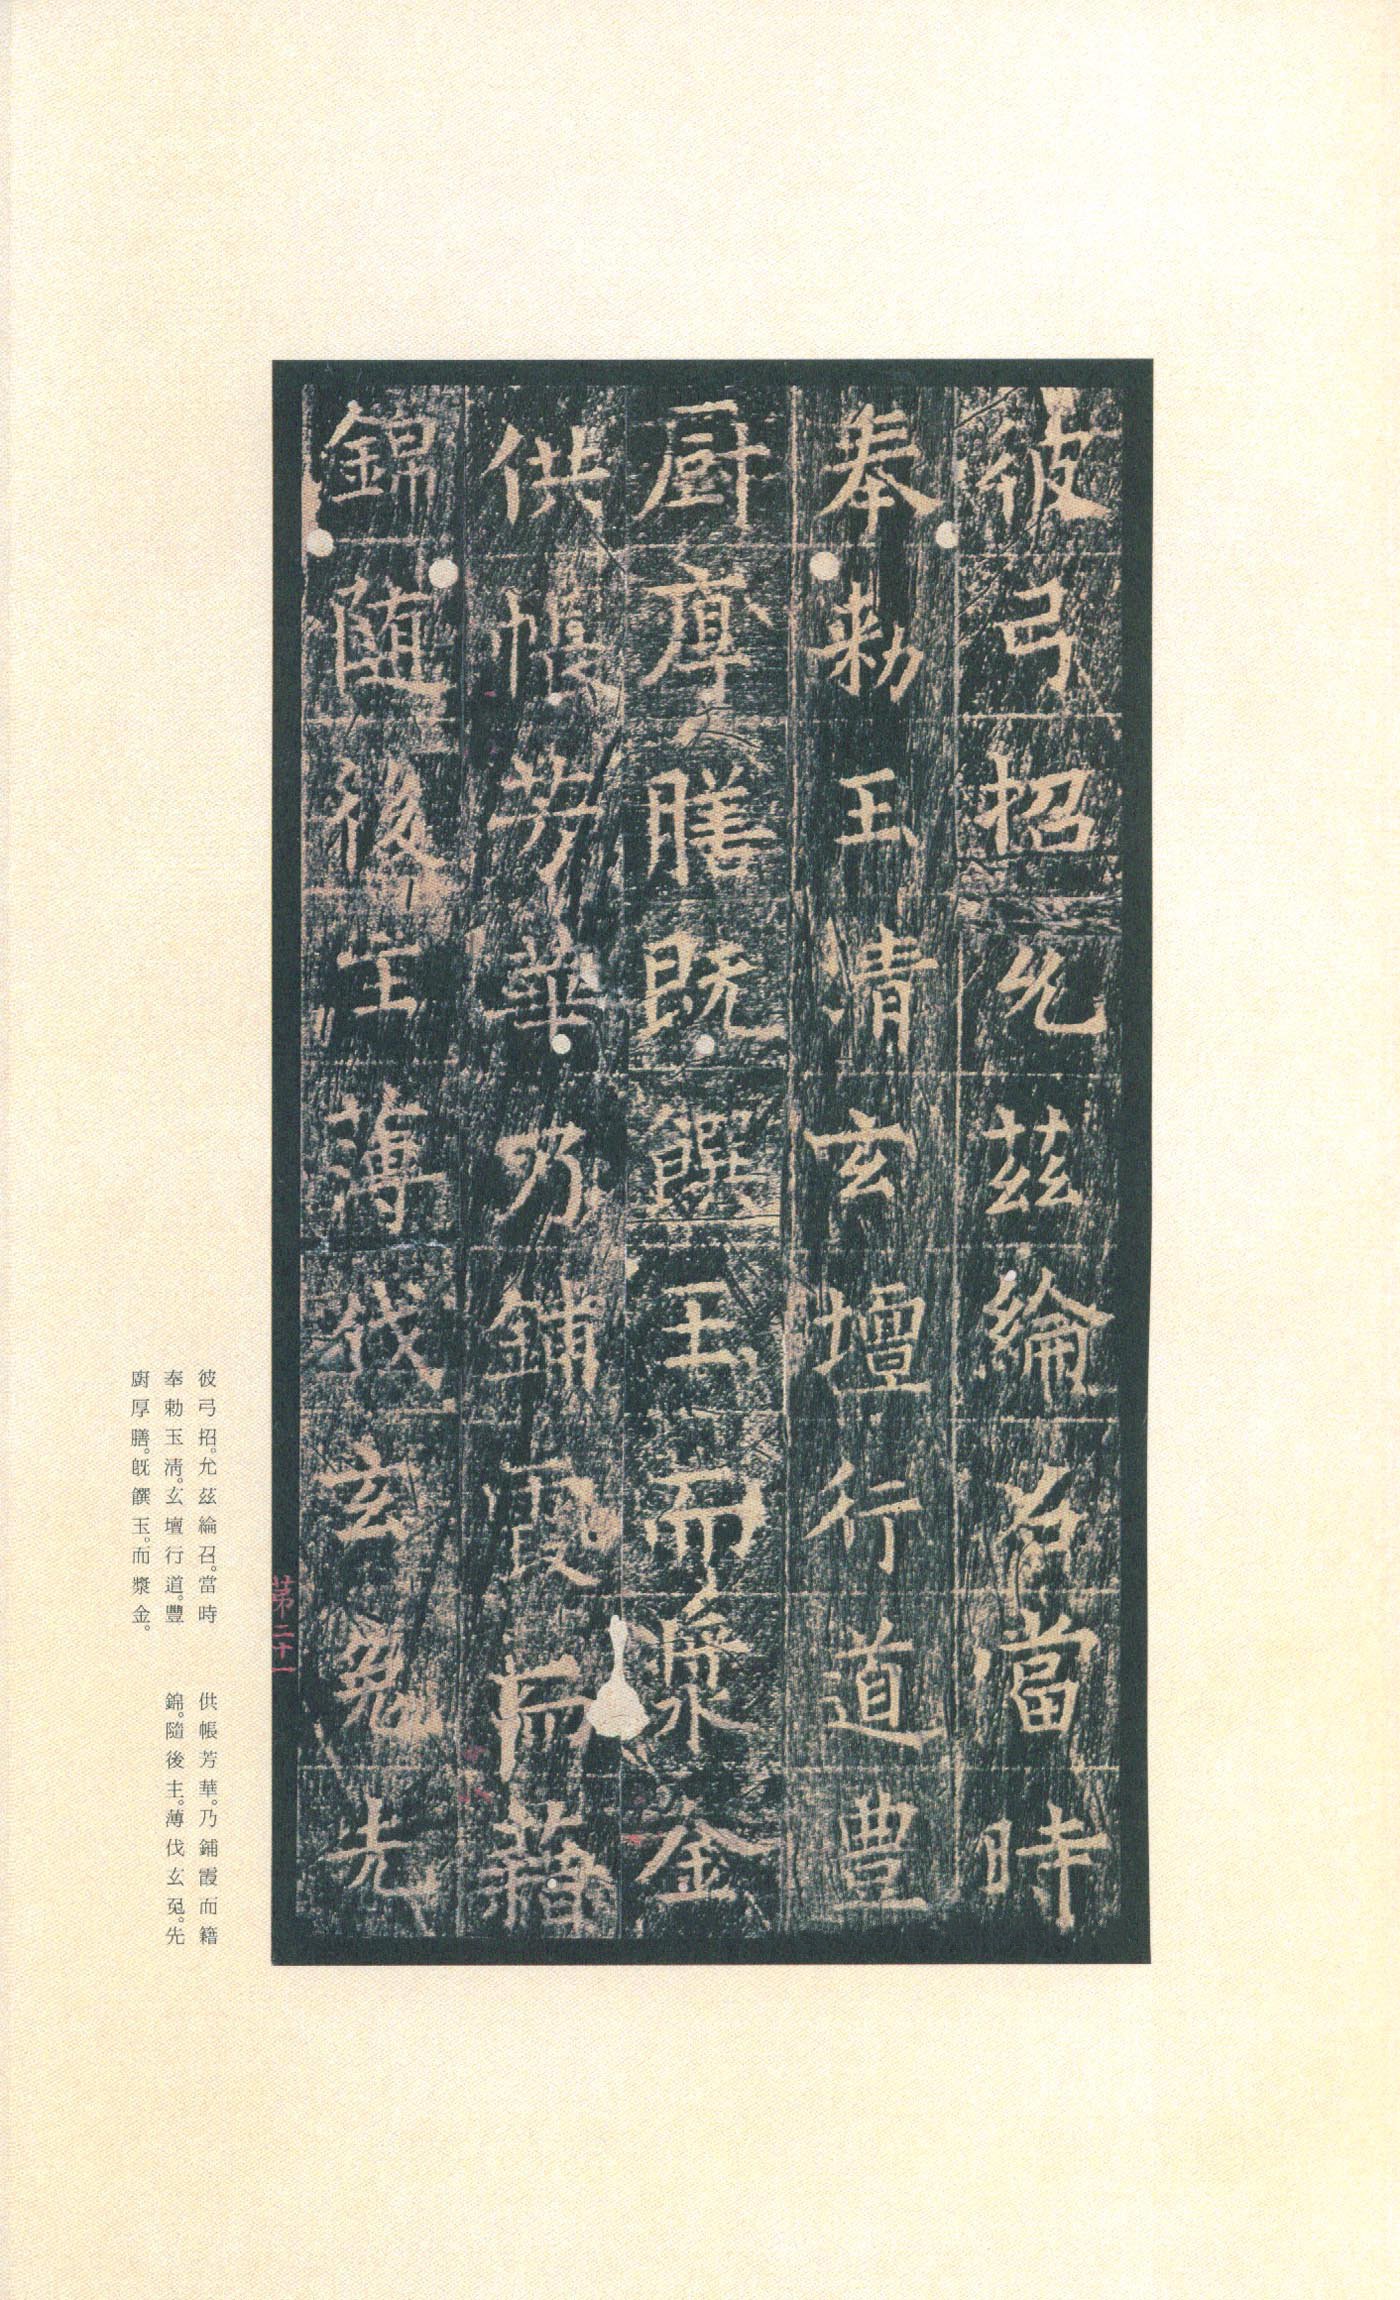 彼弓招允茲綸召當時
奉勅玉清玄壇行道豊
厨厚膳既饌玉而漿金
供帳芳華乃鋪霞而藉
錦随後主薄伐玄兔先
第二十一
彼弓招。允茲綸召。當時
奉勅玉淸。玄壇行道。豐
廚厚膳。旣饌玉。而漿金。
供帳芳華。乃鋪霞而籍
錦。隨後主。薄伐玄兔。先